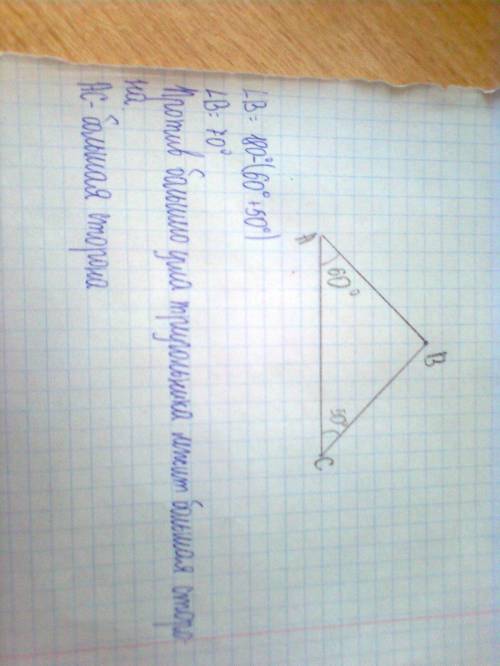 B
A
60°
50°
C
∠B = 180°-(60°+50°)
∠B = 70°
Против большего угла треугольника лежит большая сторо-
на.
AC - большая сторона